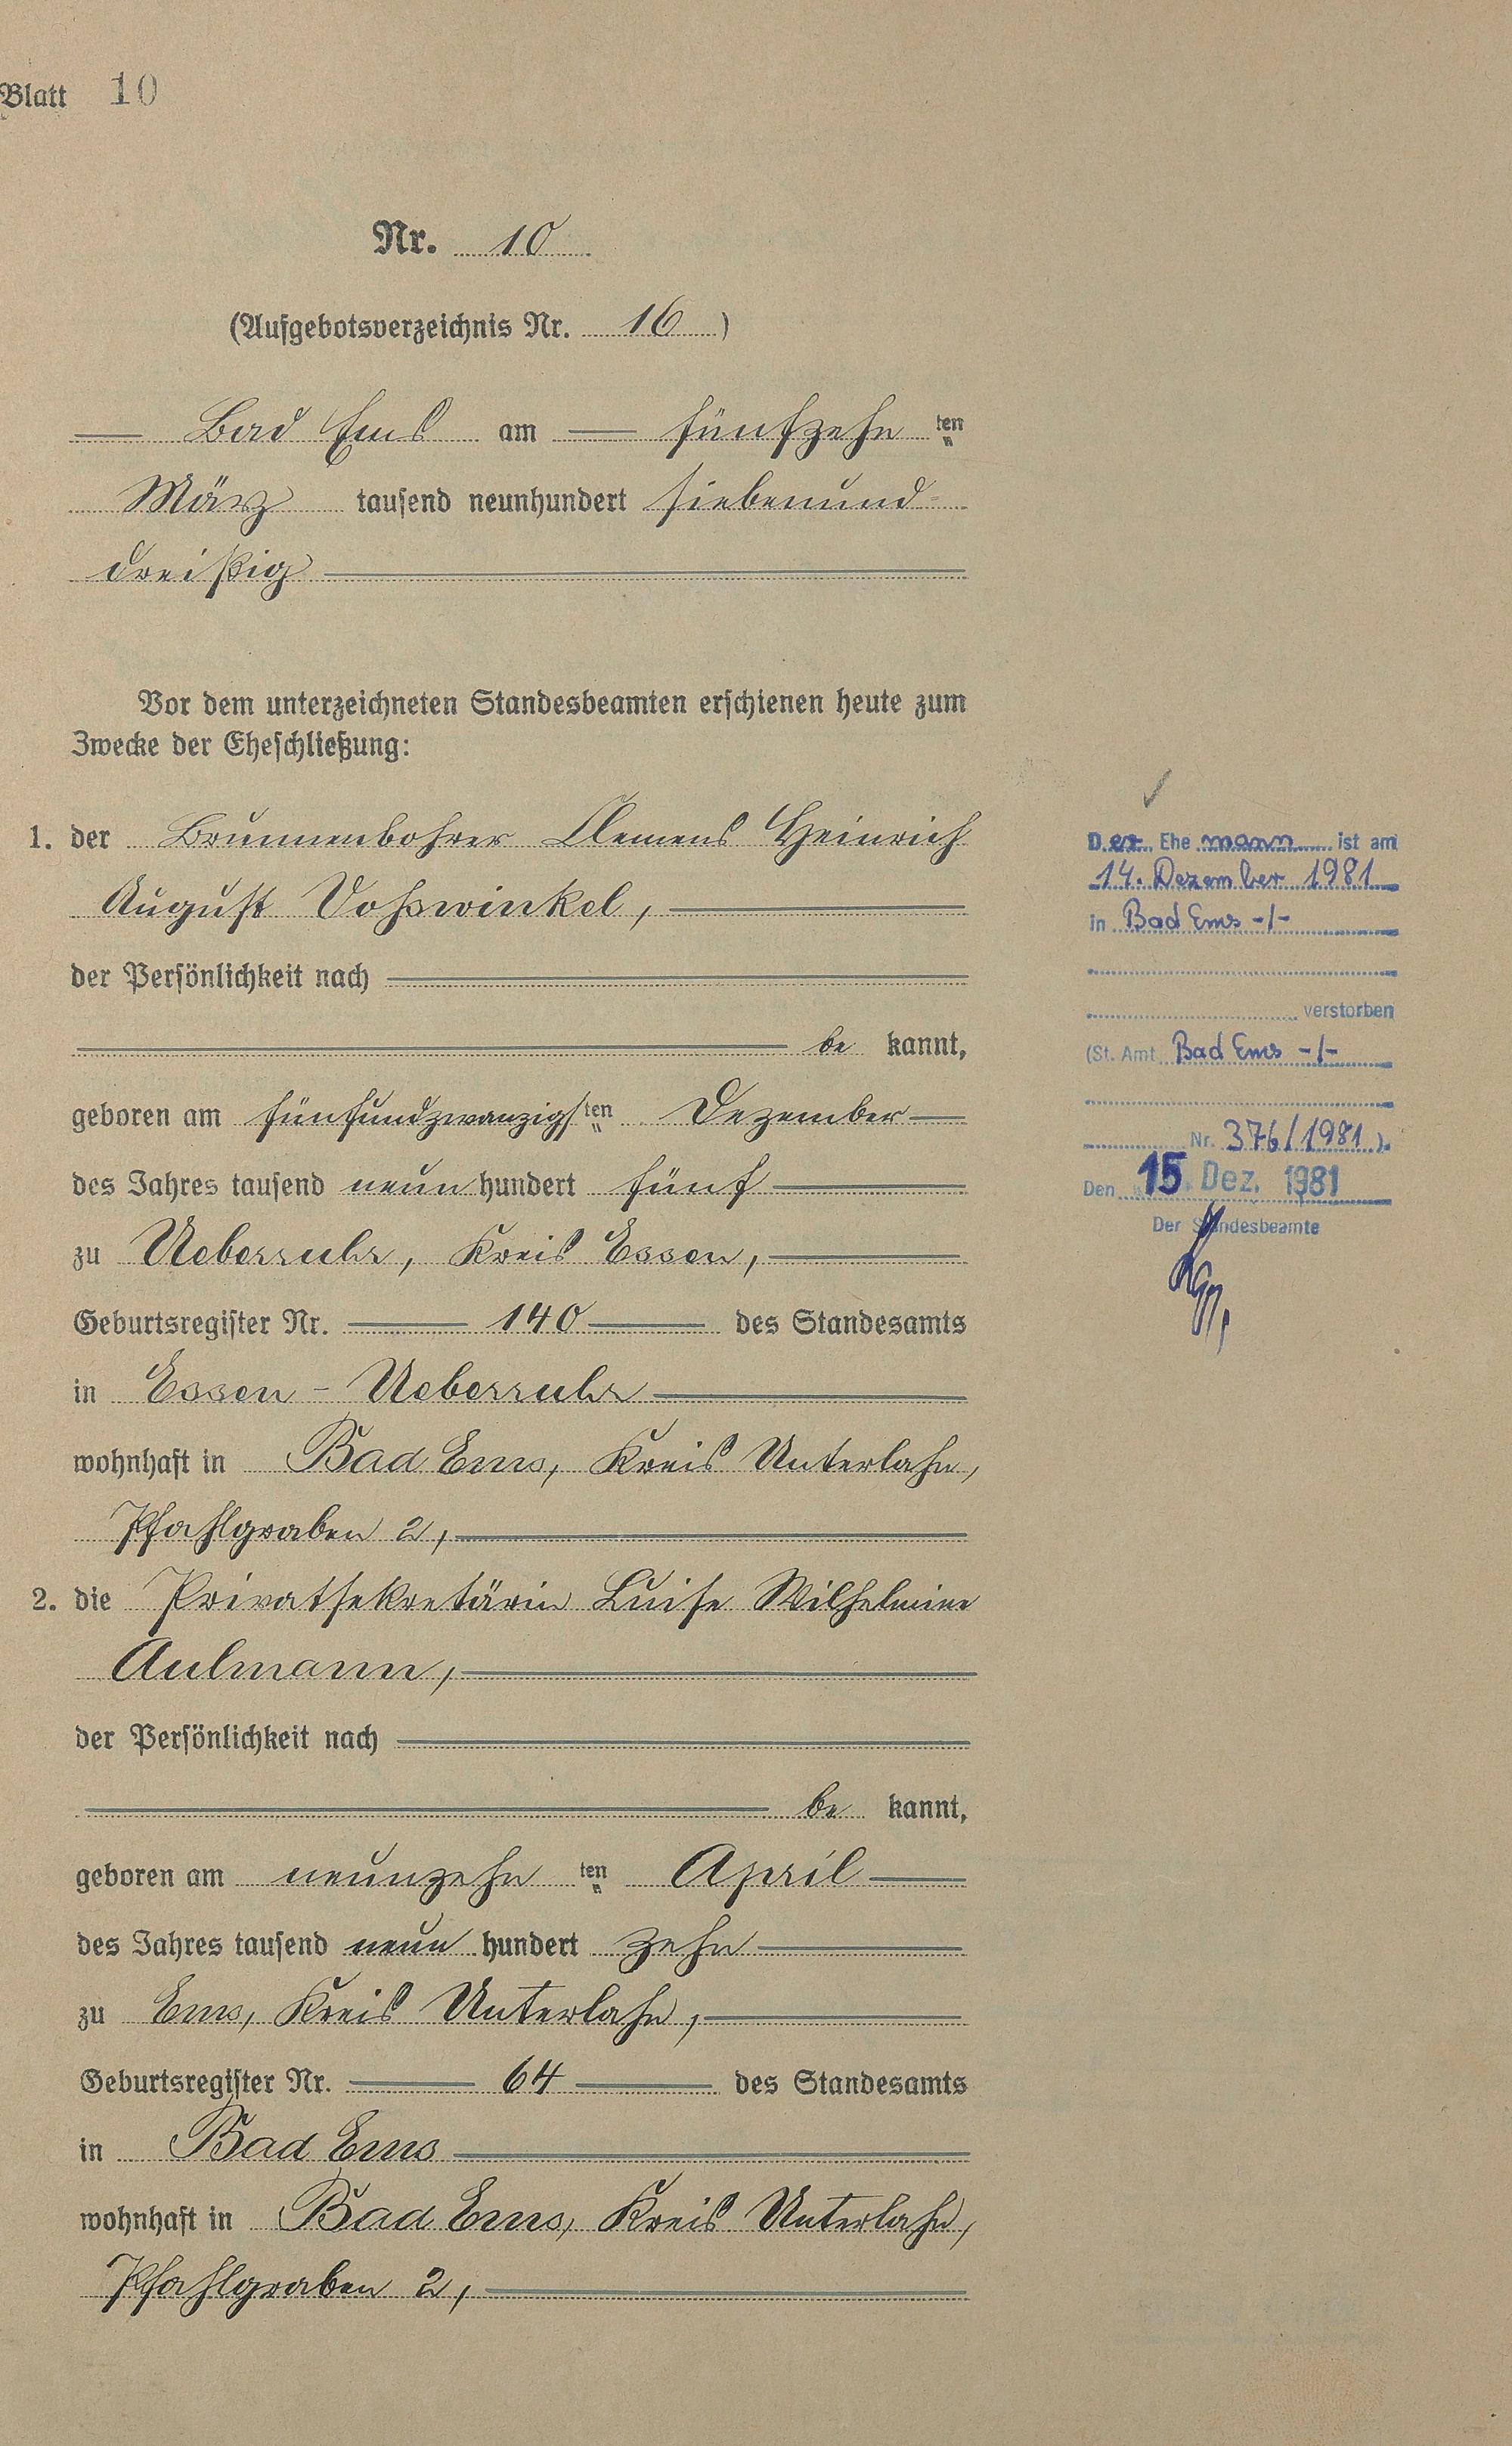 Blatt 10
Nr. 10
(Aufgebotsverzeichnis Nr. 16)
Bad Ems am fünfzehn ten
März tausend neunhundert siebenund-
dreißig
Vor dem unterzeichneten Standesbeamten erschienen heute zum
Zwecke der Eheschließung:
1. der Brunnenbohrer Clemens Heinrich
August Vohswinkel,
der Persönlichkeit nach
be kannt,
geboren am fünfundzwanzigsten Dezember
des Jahres tausend neun hundert fünf
zu Ueberruhr, Kreis Essen,
Geburtsregister Nr. 140 des Standesamts
in Essen - Ueberruhr
wohnhaft in Bad Ems, Kreis Unterlahn,
Pfahlgraben 2,
2. die Privatsekretärin Luise Wilhelmine
Aulmann,
der Persönlichkeit nach
be kannt,
geboren am neunzehn ten April
des Jahres tausend neun hundert zehn
zu Ems, Kreis Unterlahn,
Geburtsregister Nr. 64 des Standesamts
in Bad Ems
wohnhaft in Bad Ems, Kreis Unterlahn,
Pfahlgraben 2,
Der Ehe mann ist am
14. Dezember 1981
in Bad Ems -/-
verstorben
(St. Amt Bad Ems -/-
Nr. 376/1981).
Den 15. Dez. 1981
Der Standesbeamte